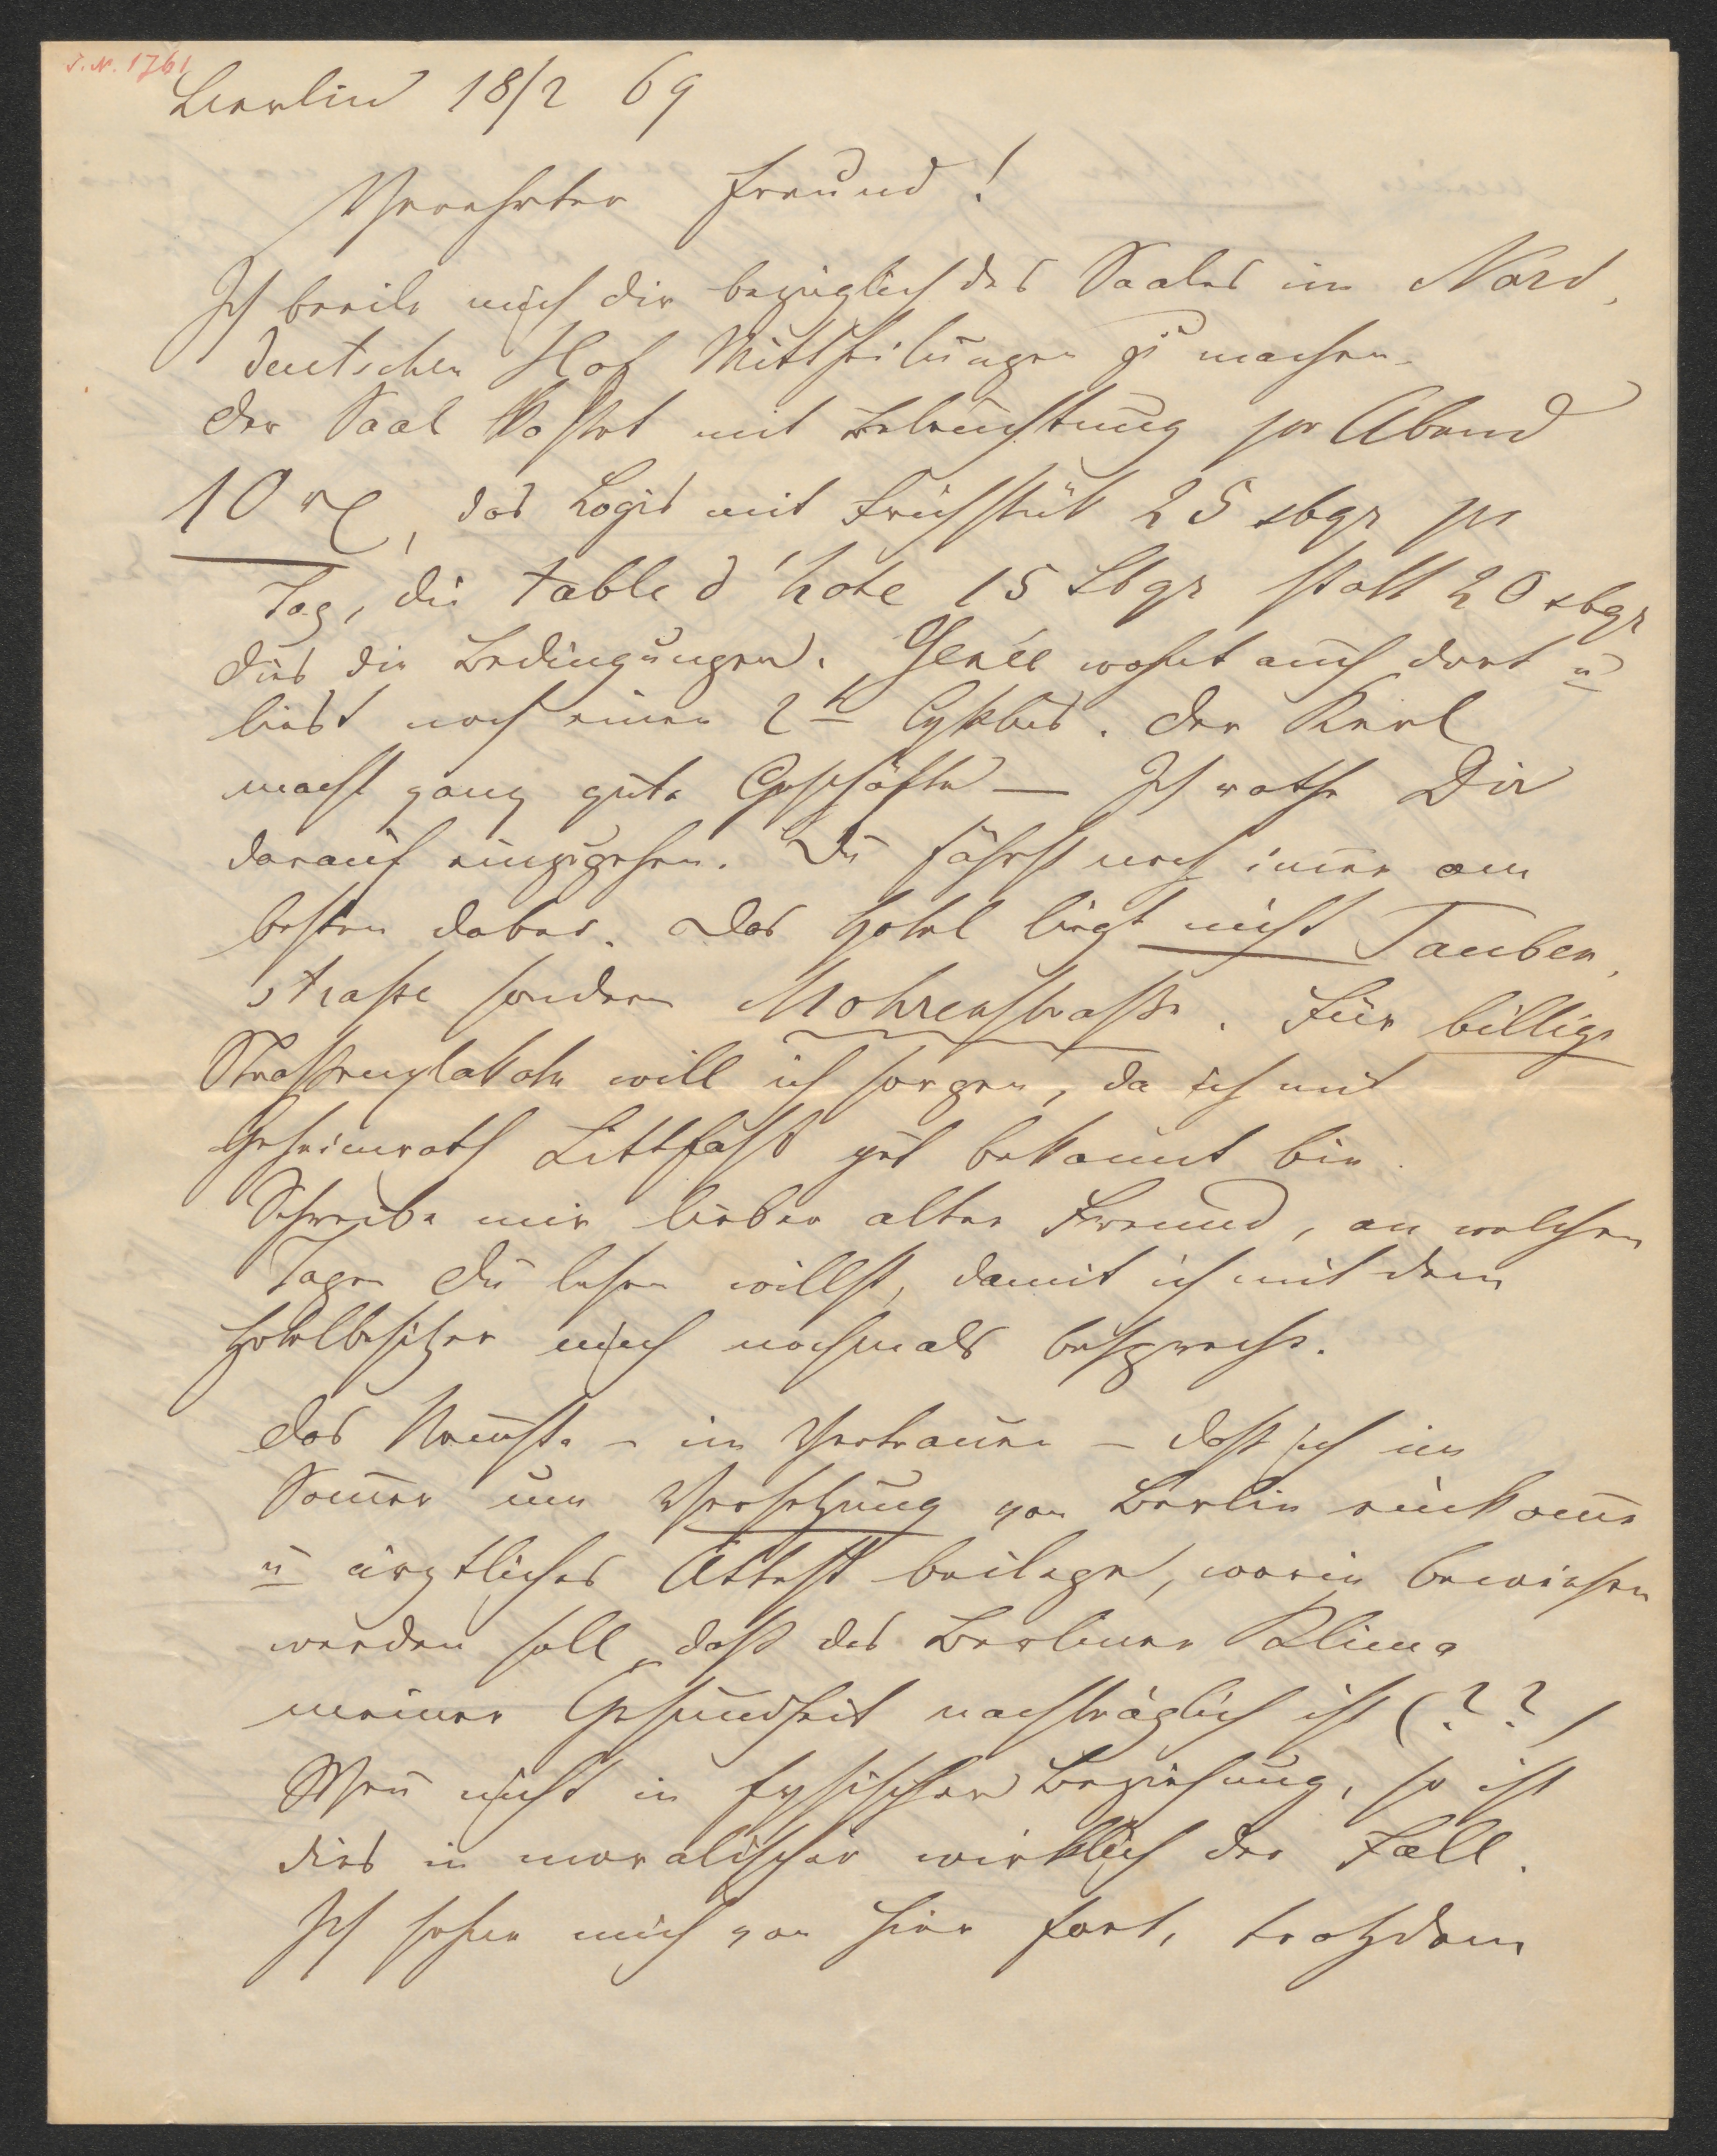 J. N. 1761
Berlin 18/2 69
Verehrter Freund!
Ich beeile mich dir bezüglich des Saales im Nord,
deutschen Hof Mittheilungen zu machen.
der Saal kostet mit Beleuchtung pr Abend
10 rℓ, das Logis mit Frühstük 25 sbgr pr
Tag, die table d'hote 15 Sbgr statt 20 sbgr
dies die Bedingungen. Genée wohnt auch dort u
liest noch einen 2t Cyklus. der Kerl
macht ganz gute Geschäfte — Ich rathe Dir
darauf einzugehen. Du fährst noch im̄er am
besten dabei. Das Hotel liegt nicht Tauben,
straße sondern Mohrenstraße. Für billige
Straßenplakate will ich sorgen, da ich mit
Geheimrath Littfaß gut bekannt bin.
Schreibe mir lieber alter Freund, an welchen
Tagen du lesen willst, damit ich mit dem
Hotelbesitzer mich nochmals bespreche.
das Neueste – im Vertrauen – daß ich im
Som̄er um Versetzung von Berlin einkom̄e
u ärztliches Attest beilege, worin bewiesen
werden soll, daß das Berliner Klima
meiner Gesundheit nachträglich ist (??)
Wen̄ nicht in fysischer Beziehung, so ist
dies in moralischer wirklich der Fall.
Ich sehne mich von hier fort, trotzdem